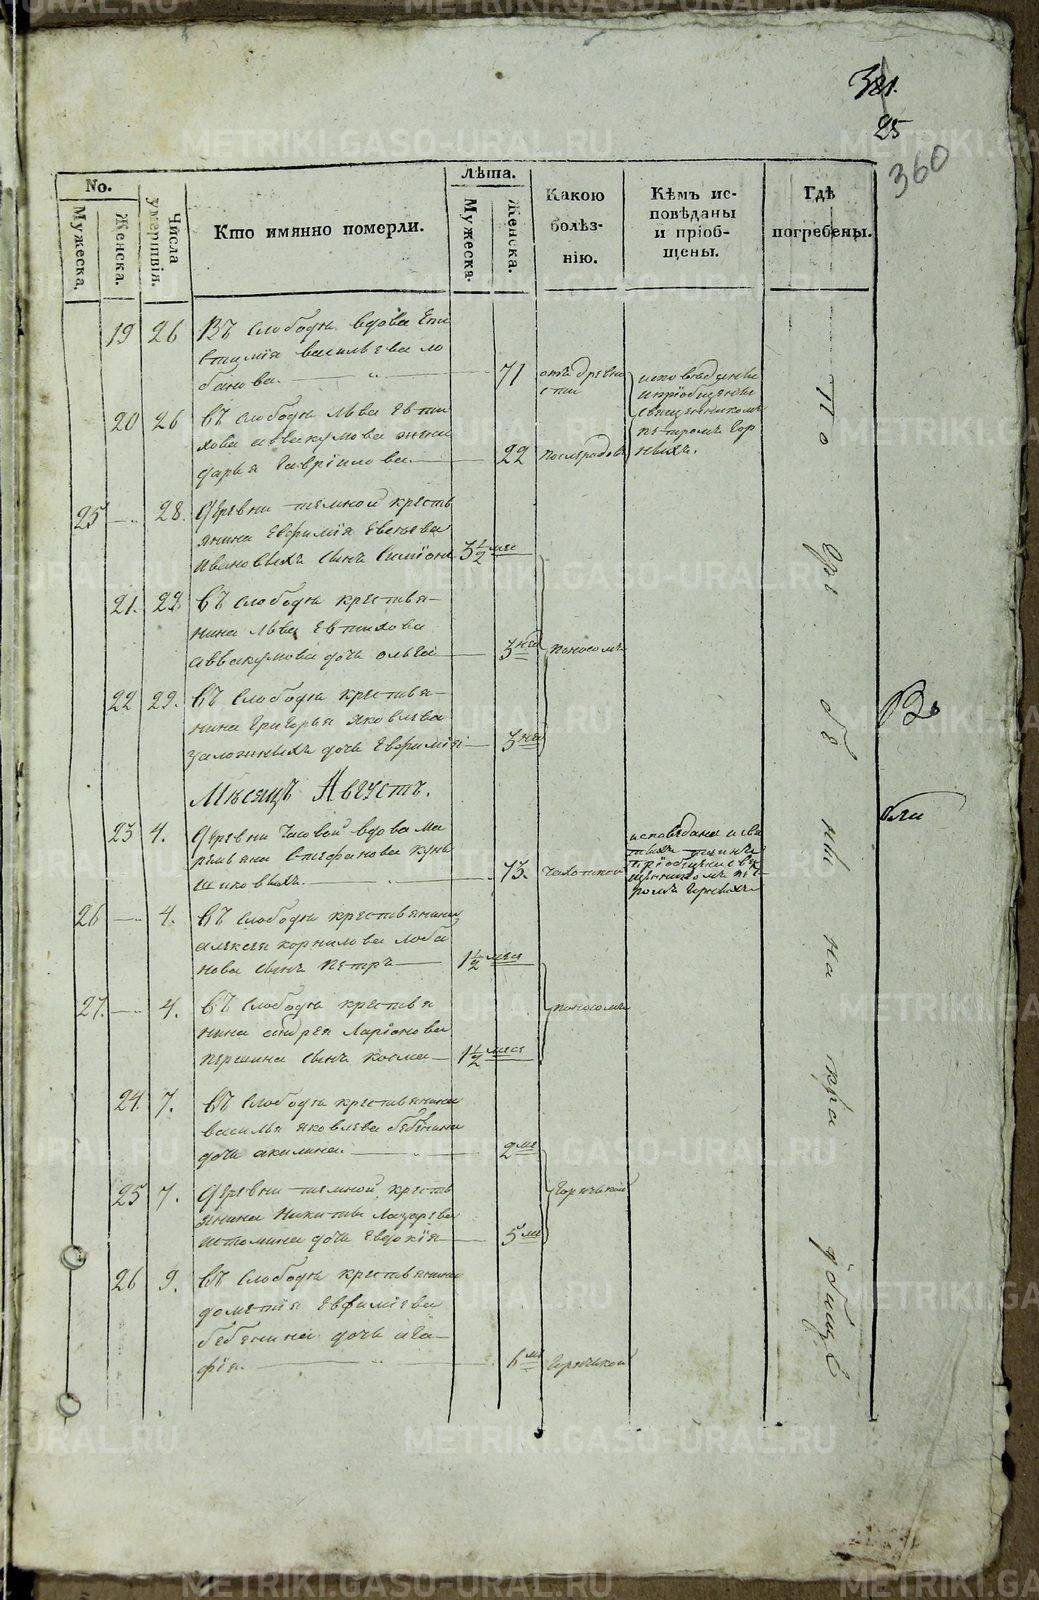 381.
25
360
No.
Мужеска.
Женска.
Числа умершвія.
Кто имянно померли.
Лѣта.
Мужеска.
Женска.
Какою болѣз-
нію.
Кѣмъ ис-
повѣданы
и пріоб-
щены.
Гдѣ
погребены.
19 26 Въ слободѣ вдова Епи
стимія васильева ло
банова. 71 отъ древно
сти
исповѣданы
и пріобщены
священникомъ
петромъ Гор
ныхъ.
20 26 Въ слободѣ льва Евти
хова аввакумова жена
дарья Гавріилова. 22 послеродовъ
25 28. Деревни темной кресть
янина Евфимія
Ивановыхъ сынъ Симіонъ 3½ мес
21. 22. Въ слободѣ крестья-
нина льва Евтихова
аввакумова дочь ольга 3 нед поносомъ
22 29. Въ слободѣ крестья-
нина григорья яковлева
заложныхъ дочь Евфимія 3 нед
Мѣсяцъ Августъ.
23 4. Деревни Часовой вдова Ма
ремьяна Стефанова
73. чахоткой
исповѣдана и свя
тыхъ таинъ
пріобщена свя
щенникомъ пет
ромъ Горныхъ
26 4. Въ слободѣ крестьянина
алексея корнилова лоба
нова сынъ петръ 1½ меся
27. 4. Въ слободѣ крестья
нина андрея Ларіонова
першина сынъ косма 1½ меся
поносомъ
24. 7. Въ слободѣ крестьянина
василья яковлева бебенина
дочь акилина. 2 ме
25 7. Деревни темной кресть
янина Никиты Лазарева
истомина дочь Евдокія 5 ме
Горячкой
26 9. Въ слободѣ крестьянина
дометія Евфиміева
бебенина дочь ага-
фія. 6 ме Горячкой
По гре бе ны на кла дбище
METRIKI.GASO-URAL.RU